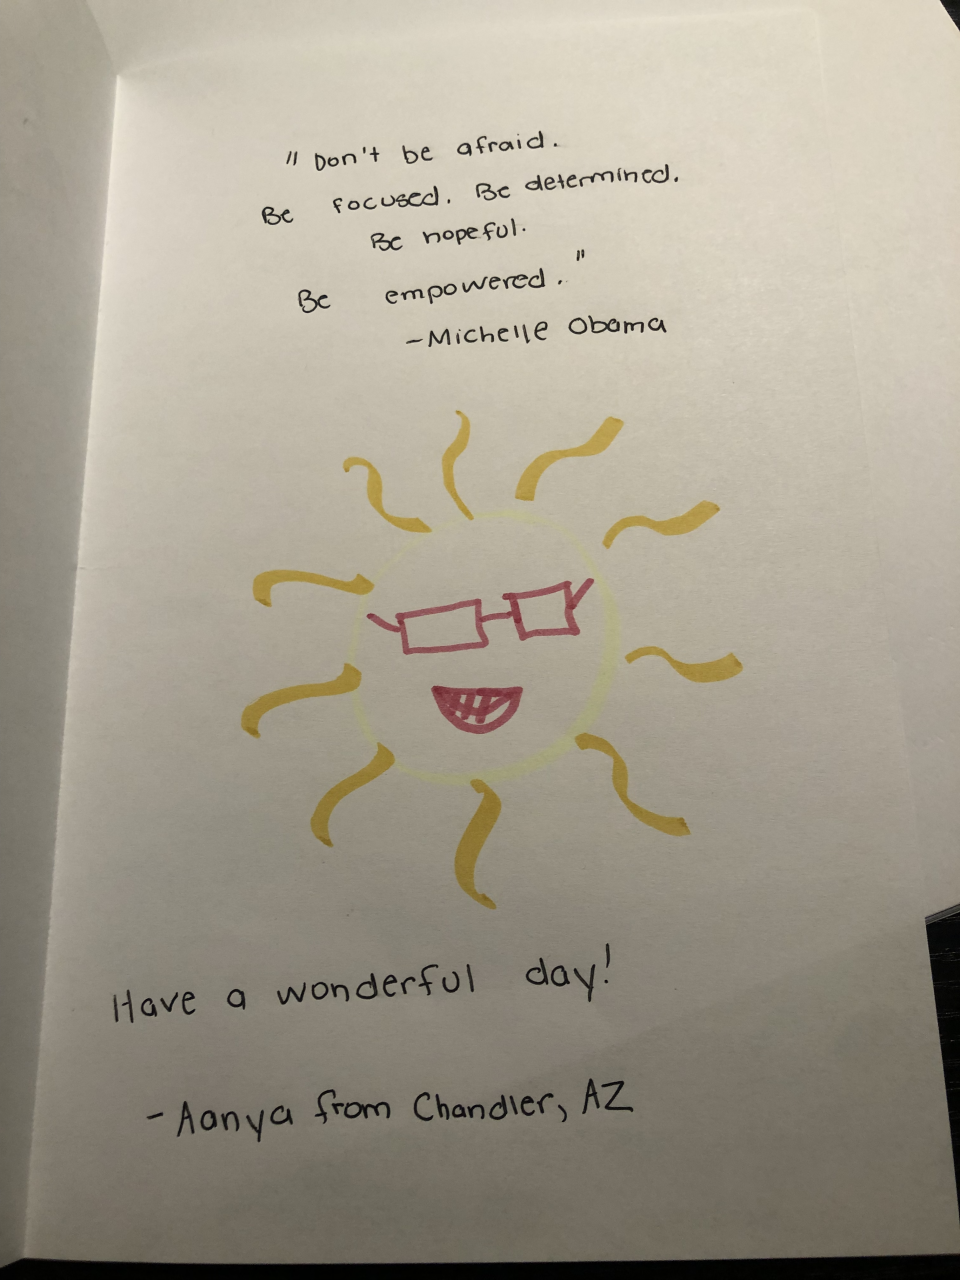 "Don't be afraid.
Be focused. Be determined.
Be hopeful.
Be empowered."
-Michelle Obama
Have a wonderful day!
- Aanya from Chandler, AZ